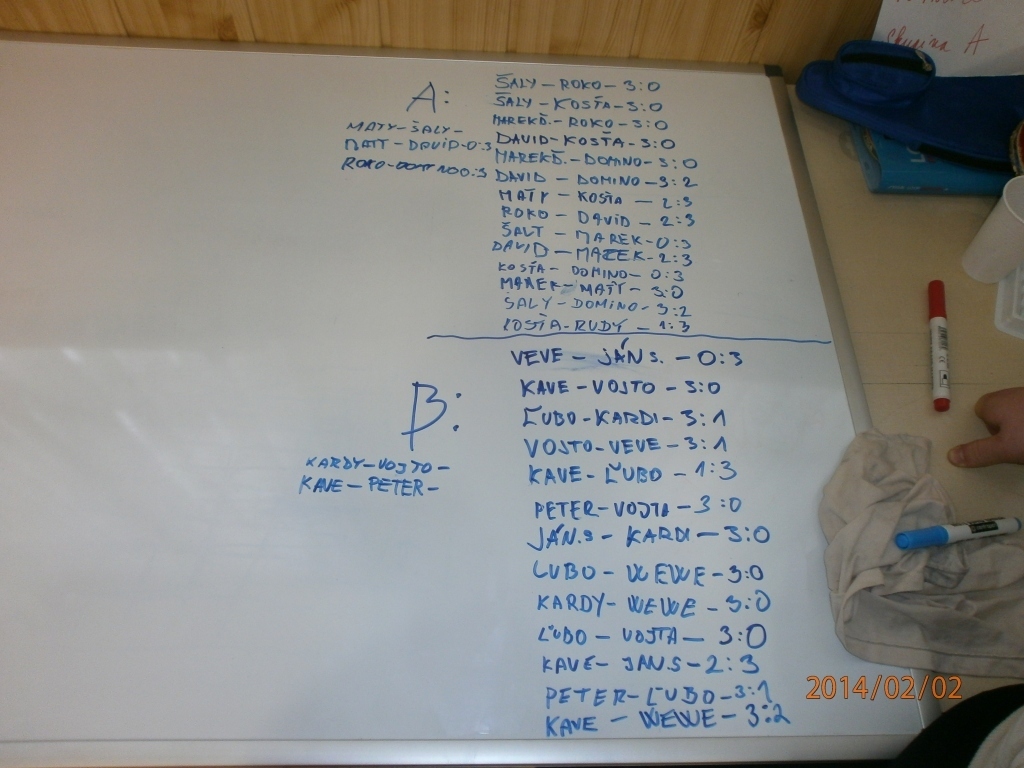 Skupina A
A:
MATY-ŠALY-
MATT-DAVID-0:3
ROKO-DOMINO0:3
ŠALY-ROKO-3:0
ŠALY-KOSŤA-3:0
MAREKŠ.-ROKO-3:0
DAVID-KOSŤA-3:0
MAREKŠ.-DOMINO-3:0
DAVID-DOMINO-3:2
MAŤY-KOSŤA-2:3
ROKO-DAVID-2:3
ŠALT-MAREK-0:3
DAVID-MAREK-2:3
KOSŤA-DOMINO-0:3
MAREK-MAŤY-3:0
ŠALY-DOMINO-3:2
KOSŤA-RUDY-1:3
B:
KARDY-VOJTO-
KAVE-PETER-
VEVE-JÁN S.-0:3
KAVE-VOJTO-3:0
ĽUBO-KARDI-3:1
VOJTO-VEVE-3:1
KAVE-ĽUBO-1:3
PETER-VOJTA-3:0
JÁN.S-KARDI-3:0
LUBO-WEWE-3:0
KARDY-WEWE-3:0
ĽUBO-VOJTA-3:0
KAVE-JANS-2:3
PETER-ĽUBO-3:1
KAVE-WEWE-3:2
2014/02/02